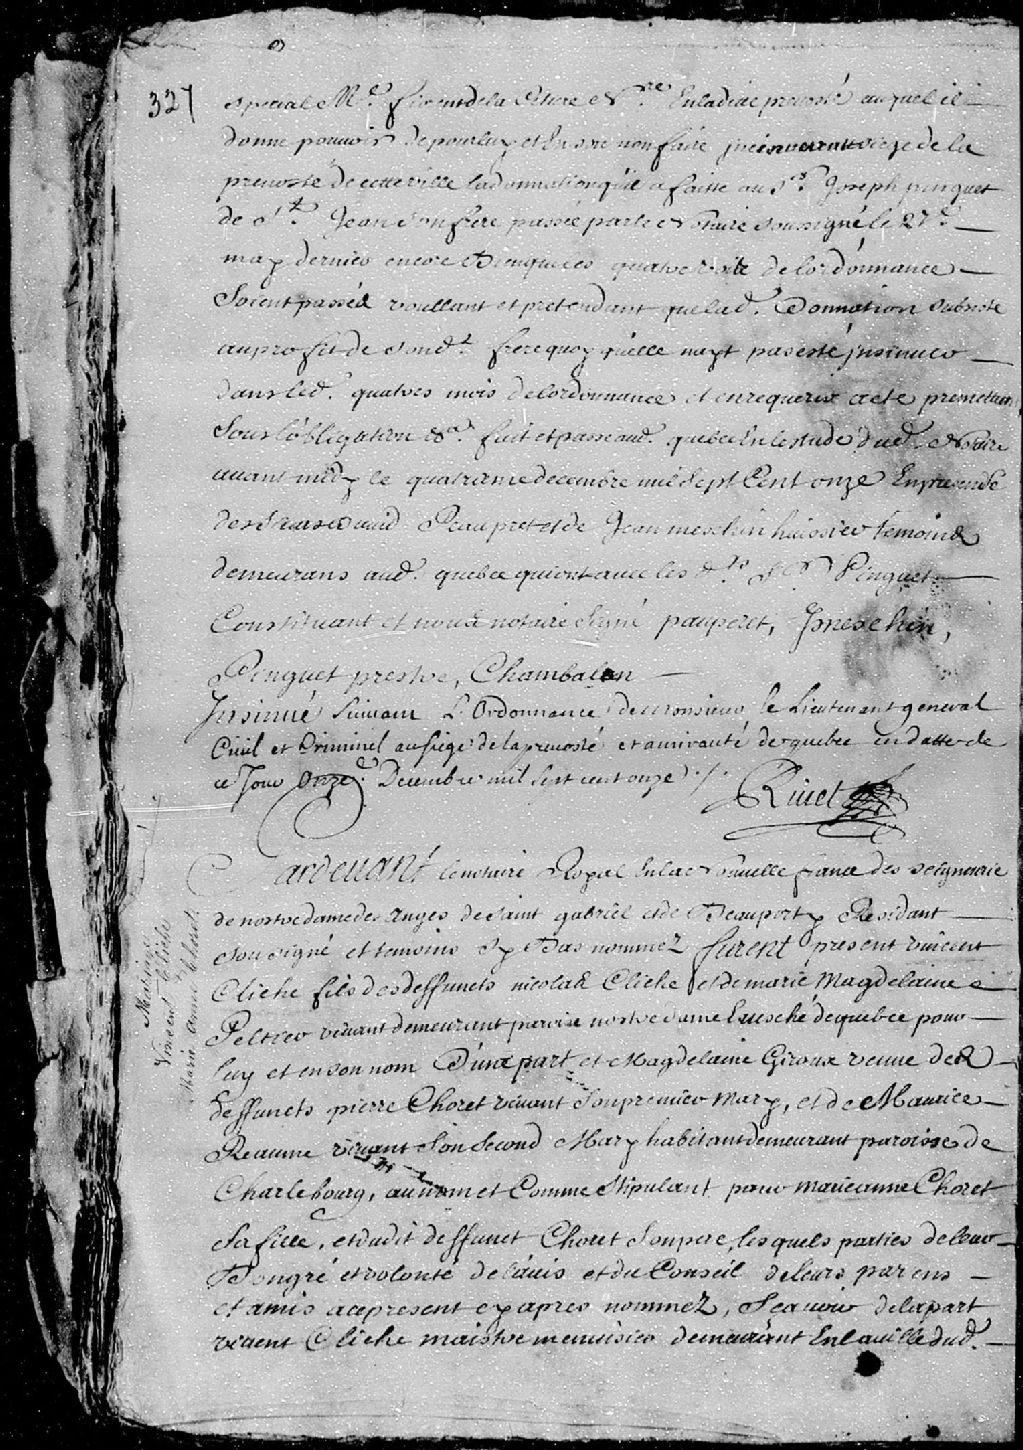 327
special Me. florent de la Cetiere Nre. En ladite prevosté auquel il
donne pouvoir de pour luy et En son nom faire jnsinuer au siege de la
prevosté de cette ville la donnation qu'il a faitte au Sr. Joseph pinguet
de St. Jean son frere passée par le Notaire soussigné le 27e.
may dernier encore Bien que les quatre mois de l'ordonnance
Soient passéz voullant et pretendant que lad. Donnation subsiste
au profit de sond. frere quoy qu'elle nayt pas esté jnsinuée
dans led. quatres mois de l'ordonnance et en requerir acte prometant
Sous l'obligation &a. fait et passé aud. quebec En l'estude dud. Notaire
avant midy le quatrieme decembre mil Sept Cent onze En presence
des Sieurs David Pauperet et de Jean meschin huissier temoins
demeurans aud. quebec qui ont avec les d. Sr Pinguet
Constituant et nous notaire Signé pauperet, Jmeschin,
Pinguet prestre, Chambalon
Jnsinué Suivant L'Ordonnance de monsieur le Lieutenant general
Civil et Criminel au siege de la prevosté et amirauté de quebec en datte de
ce Jour Onze. Decembre mil Sept cent onze ./.
Rivet
Mariage
Vincent Cliche
Marie anne Choret
Pardevant le notaire Royal En la Nouvelle france des seigneurie
de nostre dame des Anges de Saint gabriel et de Beauport y Residant
sousigné et temoins Cy Bas nommez furent present vincent
Cliche fils des deffuncts nicolas Cliche et de marie Magdelaine
Peltier vivant demeurant paroisse nostre dame Evesché de quebec pour
luy et en son nom D'une part et Magdelaine Giroux veuve des
deffuncts pierre Choret vivant Son premier mary, et de Maurice
Reaume vivant Son second Mary habitant demeurant paroisse de
Charlebourg, au nom et Comme Stipulant pour marieanne Choret
Sa fille, et dudit deffunct Choret Son pere, lesquels parties de leur
Bon gré et volonté de l'avis et du Conseil de leurs parens
et amis a ce present cy apres nommez, Scavoir de la part
vincent Cliche maistre menuisier demeurant En la ville dud.